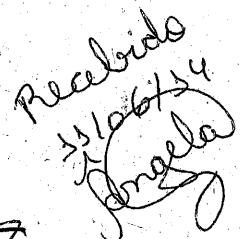 Recebido
11/06/14
Angela